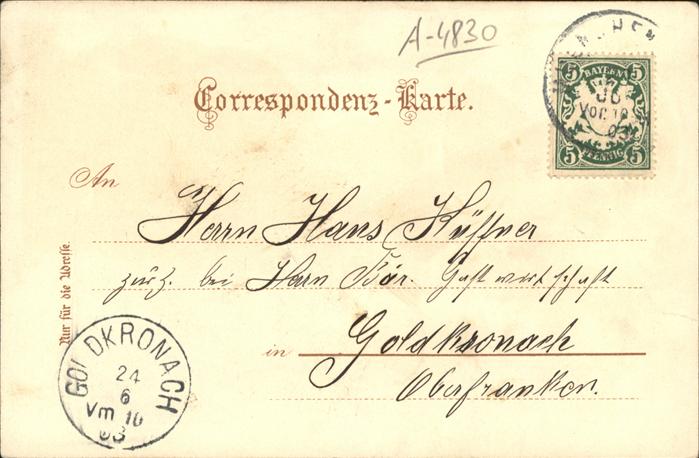 A-4830
MÜNCHEN
BAYERN
5 5
Vor. 10
03
PFENNIG
5 5
Correspondenz-Karte.
An
Herrn Hans Küffner
zurz. bei Herrn Bär. Gastwirtschaft
in Goldkronach
Oberfranken.
Nur für die Adresse.
GOLDKRONACH
24
6
Vm 10
03